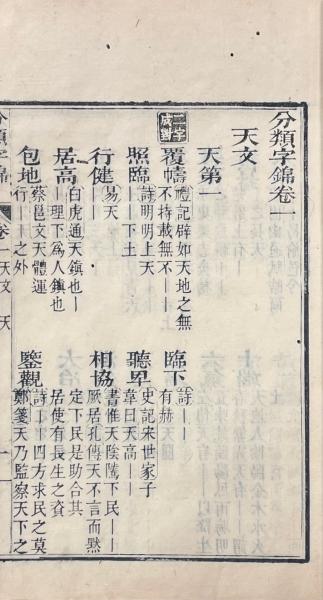 分類字錦卷一
天文
天第一
二字
成對
覆幬
禮記辟如天地之無
不持載無不丨丨
臨下
詩丨丨
有赫
照臨
詩明明上天
丨丨下土
聽卑
史記宋世家子
韋曰天高丨丨
行健
易天
丨丨
相協
書惟天陰隲下民丨丨
厥居孔傳天不言而默
定下民是助合其
居使有長生之資
居高
白虎通天鎮也丨
丨理下爲人鎮也
包地
蔡邕文天體運
行丨丨之外
鑒觀
詩丨丨四方求民之莫
鄭箋天乃監察天下之
分類字錦
卷一
天文
天
一